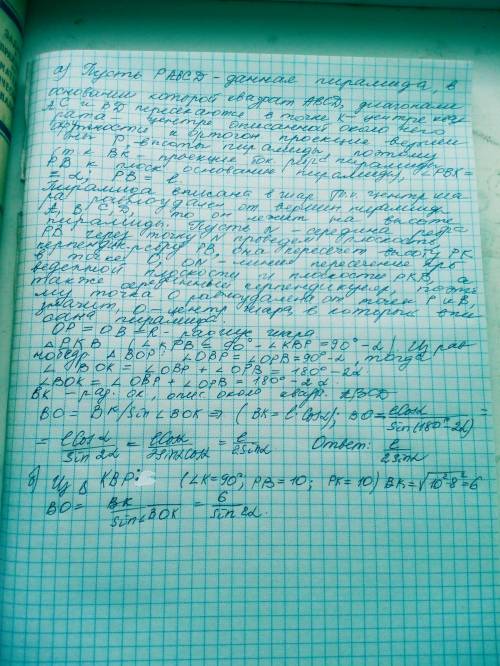 а) Пусть PABCD - данная пирамида, в
основании которой квадрат ABCD, диагонали
AC и BD пересекают в точке K - центре квад
рата - центре описанной около него
окружности и ортогон проекции вершин
ы P, высоты пирамиды, поэтому
BK - проекция бок ребра пирамиды
PB к плоск основание пирамиды, ∠PBK =
= α; PB = l
Пирамида вписана в шар. Т.к. центр ша
ра равноудален от вершин пирамиды
A, B, C, D, то он лежит на высоте
пирамиды. Пусть N - середина ребра
PB через точку N проведем плоскость
перпендик. ребру PB, она пересечет высоту PK
в точке O, ON - линия пересечения про
веденной плоскости и плоскости PKB, а
также серединный перпендикуляр, поэто
му точка O равноудалена от точек P и B,
значит O - центр шара, в который впи
сана пирамида.
OP = OB = R - радиус шара
△PKB (∠KPB = 90° - ∠KBP = 90° - α) Из рав
нобедр. △BOP: ∠OBP = ∠OPB = 90° - α, тогда
∠BOK = ∠OBP + ∠OPB = 180° - 2α
∠BOK = ∠OBP + ∠OPB = 180° - 2α
BK - рад. ок., опис. около квадр. ABCD
BO = BK/sin∠BOK ⇒ (BK = l cosα); BO = lCosα/Sin(180°-2α) =
= lCosα/Sin2α = lCosα/2SinαCosα = l/2Sinα Ответ: l/2Sinα
б) Из △KBP: (∠K=90°, PB=10; PK=10) BK=√10²-8²=6
BO = BK/Sin∠BOK = 6/sin2α.